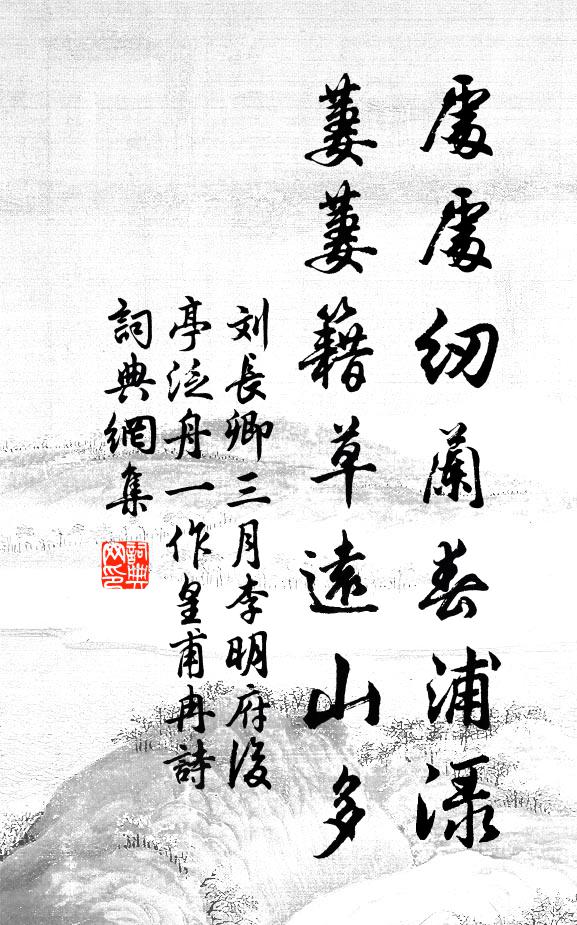 處處紉蘭春浦渌
萋萋籍草遠山多
刘長卿三月李明府後
亭泛舟一作皇甫冉詩
詞典網集
詞典网印